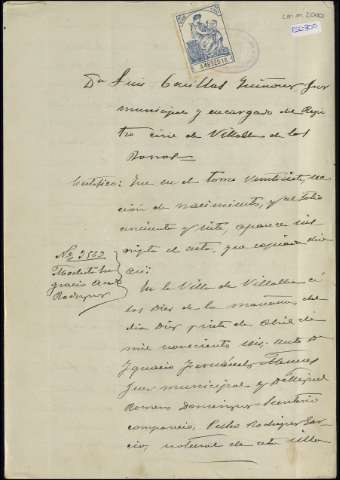 Dn Luis Casillas Quiñones Juez
municipal y encargado del Regis
tro civil de Villalba de los
Barros
Certifico: Que en el tomo veintisiete, sec
ción de nacimientos, y al folio
ciento y siete, aparece ins
cripta el acta, que copiada dice
así
Nº 2562
Rodriguez
En la Villa de Villalba a
las diez de la mañana del
dia diez y siete de Abril de
mil novecientos seis, ante D.
Ignacio Fernández
Juez municipal y D. Miguel
Romero Dominguez Secretario
compareció, Pedro Rodriguez Gar
cia, natural de esta villa